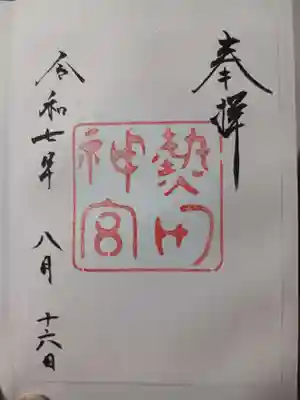 奉拝
熱田
神宮
令和七年 八月 十六日